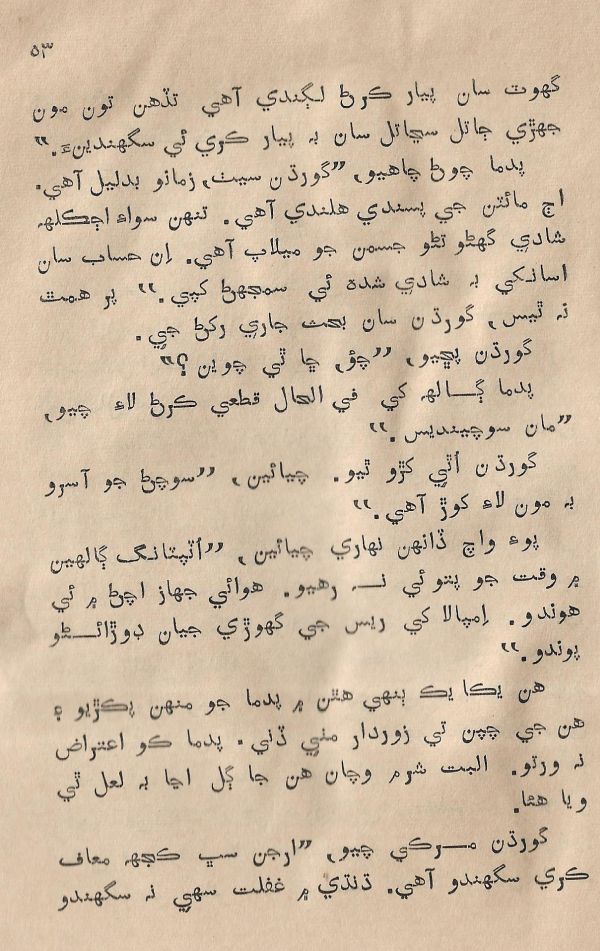 ۵۳
گهوٽ سان پيار ڪرڻ لڳندي آهي تڏهن تون مون
جهڙي ڄاتل سڃاتل سان بہ پيار ڪري ئي سگهندينءَ.”
پدما چوڻ چاهيو، “گورڌن سيٺ، زمانو بدليل آهي.
اڄ مائٽن جي پسندي هلندي آهي. تنهن سواءِ اڄڪلهہ
شادي گهڻو تڻو جسمن جو ميلاپ آهي. اِن حساب سان
اسانکي بہ شادي شده ئي سمجهڻ کپي.” پر همت
نہ ٿيس، گورڌن سان بحث جاري رکڻ جي.
گورڌن پڇيو، “چؤ، ڇا ٿي چوين؟”
پدما ڳالهہ کي في الحال قطعي ڪرڻ لاءِ چيو،
“مان سوچينديس.”
گورڌن اُٿي کڙو ٿيو. چيائين، “سوچڻ جو آسرو
بہ مون لاءِ ڪوڙ آهي.”
پوءِ واچ ڏانهن نهاري چيائين، “اُٽپٽانگ ڳالهين
۾ وقت جو پتوئي نہ رهيو. هوائي جهاز اچڻ ۾ ئي
هوندو. اِمپالا کي ريس جي گهوڙي جيان ڊوڙائڻو
پوندو.”
هن يڪا يڪ ٻنهي هٿن ۾ پدما جو منهن پڪڙيو ۽
هن جي چپن تي زوردار مٺي ڏني. پدما ڪو اعتراض
نہ ورتو. البت شرم وچان هن جا ڳل اڃا بہ لعل ٿي
ويا هئا.
گورڌن مرڪي چيو، “ارجن سڀ ڪجهہ معاف
ڪري سگهندو آهي. ڌنڌي ۾ غفلت سهي نہ سگهندو